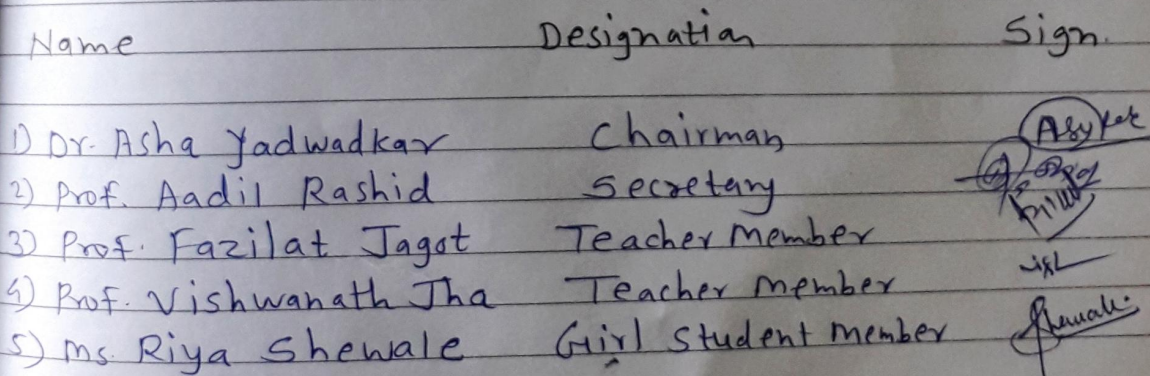 Name Designation Sign.
1) Dr. Asha Yadwadkar Chairman
2) Prof. Aadil Rashid Secretary
3) Prof. Fazilat Jagot Teacher Member
4) Prof. Vishwanath Jha Teacher member
5) Ms. Riya Shewale Girl student member